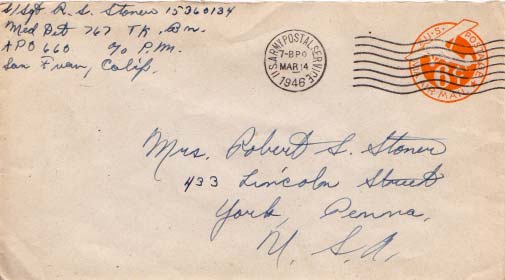 S/Sgt R. S. Stoner 15360134
Med Det 767 TK. Bn.
APO 660 c/o P.M.
San Fran, Calif.
U.S. ARMY POSTAL SERVICE
7-8 PM
MAR 14
1946
U.S. POSTAGE
6¢
AIR MAIL
Mrs. Robert S. Stoner
433 Lincoln Street
York, Penna.
U. S. A.